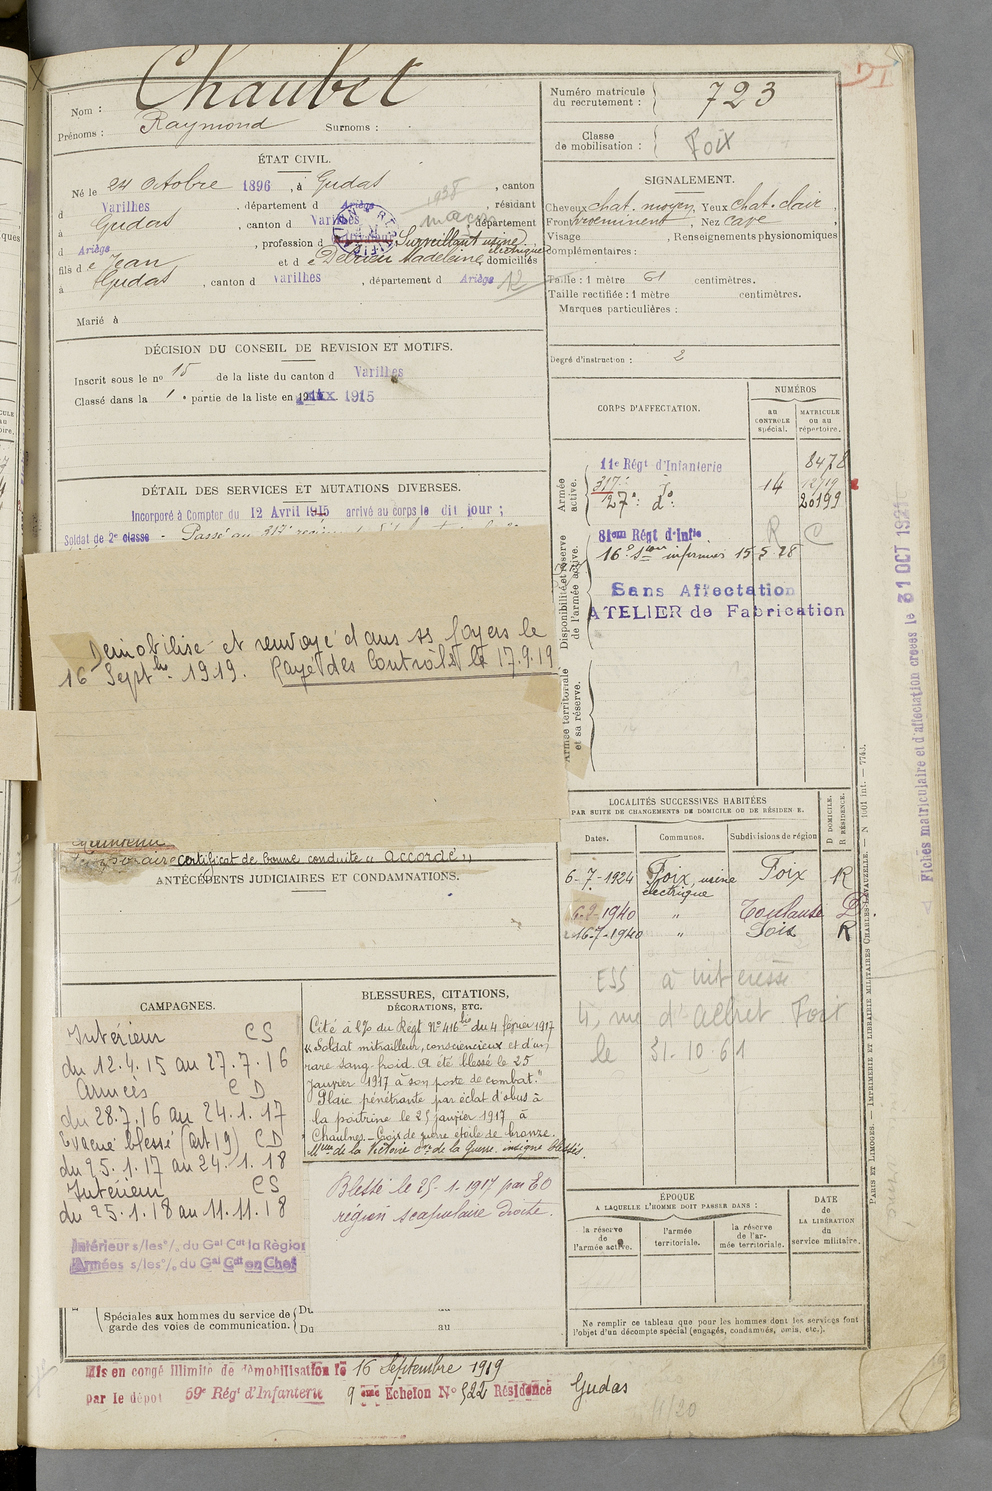 Nom : Chaubet
Prénoms : Raymond Surnoms :
Numéro matricule du recrutement : 723
Classe de mobilisation : Foix
ÉTAT CIVIL.
Né le 24 Octobre 1896, à Gudas, canton
d Varilhes, département d Ariège, résidant
à Gudas, canton d Varilhes, département
d Ariège, profession d Surveillant usine électrique
1938
maçon
fils de Jean et de Madeleine, domiciliés
à Gudas, canton d Varilhes, département d Ariège
12
Marié à
SIGNALEMENT.
Cheveux chat. moyen, Yeux chat. clair,
Front proeminent, Nez cave
Visage , Renseignements physionomiques
complémentaires :
Taille : 1 mètre 61 centimètres.
Taille rectifiée : 1 mètre centimètres.
Marques particulières :
Degré d'instruction : 2
DÉCISION DU CONSEIL DE REVISION ET MOTIFS.
Inscrit sous le nº 15 de la liste du canton d Varilhes
Classé dans la 1e partie de la liste en 1915
DÉTAIL DES SERVICES ET MUTATIONS DIVERSES.
Incorporé à Compter du 12 Avril 1915 arrivé au corps le dit jour ;
Soldat de 2e classe - Passé au 317e
Démobilisé et renvoyé dans ss foyers le
16 Septbre 1919. Rayé des Contrôles le 17.9.19
certificat de bonne conduite "Accordé"
ANTÉCÉDENTS JUDICIAIRES ET CONDAMNATIONS.
CORPS D'AFFECTATION.
NUMÉROS
au CONTROLE spécial.
MATRICULE ou au répertoire.
Armée active.
11e Régt d'Infanterie 8478
317e 14 12719
127e do 20199
Disponibilité et réserve de l'armée active.
81em Régt d'Infie R C
16e Son infirmiers 15 5 28
Sans Affectation
ATELIER de Fabrication
Armée territoriale et sa réserve.
LOCALITÉS SUCCESSIVES HABITÉES
PAR SUITE DE CHANGEMENTS DE DOMICILE OU DE RÉSIDENCE.
Dates. Communes. Subdivisions de région
D DOMICILE. R RÉSIDENCE.
6-7-1924 Foix, usine électrique Foix R
6-2-1940 " Toulouse D
16-7-1940 " Foix R
ESS à intéressé
4, rue d'Albret Foix
le 31-10-61
CAMPAGNES.
Intérieur CS
du 12.4.15 au 27.7.16
Armées CD
du 28.7.16 au 24.1.17
Evacué blessé (art 19) CD
du 25.1.17 au 24.1.18
Intérieur CS
du 25.1.18 au 11.11.18
Intérieur s/les º/. du Gal Cdt la Région
Armées s/les º/. du Gal Cdt en Chef
BLESSURES, CITATIONS,
DÉCORATIONS, ETC.
Cité à l'% du Régt Nº 416bis du 4 février 1917
"Soldat mitrailleur, consciencieux et d'un
rare sang froid. A été blessé le 25
janvier 1917 à son poste de combat."
Plaie pénétrante par éclat d'obus à
la poitrine le 25 janvier 1917 à
Chaulnes - Croix de guerre étoile de bronze.
Mlle de la Victoire cve de la Guerre, insigne blessés.
Blessé le 25.1.1917 par EO
région scapulaire droite.
Spéciales aux hommes du service de garde des voies de communication.
Du au
Du au
ÉPOQUE
A LAQUELLE L'HOMME DOIT PASSER DANS :
la réserve de l'armée active.
l'armée territoriale.
la réserve de l'armée territoriale.
DATE de LA LIBÉRATION du service militaire.
Ne remplir ce tableau que pour les hommes dont les services font
l'objet d'un décompte spécial (engagés, condamnés, omis, etc.).
Mis en congé illimité de démobilisation le 16 Septembre 1919
par le dépôt 59e Régt d'Infanterie 9 ème Echelon Nº 522 Résidence Gudas
Fiches matriculaire et d'affectation créées le 31 OCT 1921
PARIS ET LIMOGES. — IMPRIMERIE ET LIBRAIRIE MILITAIRES CHARLES-LAVAUZELLE. — N 1001 int. — 7745.